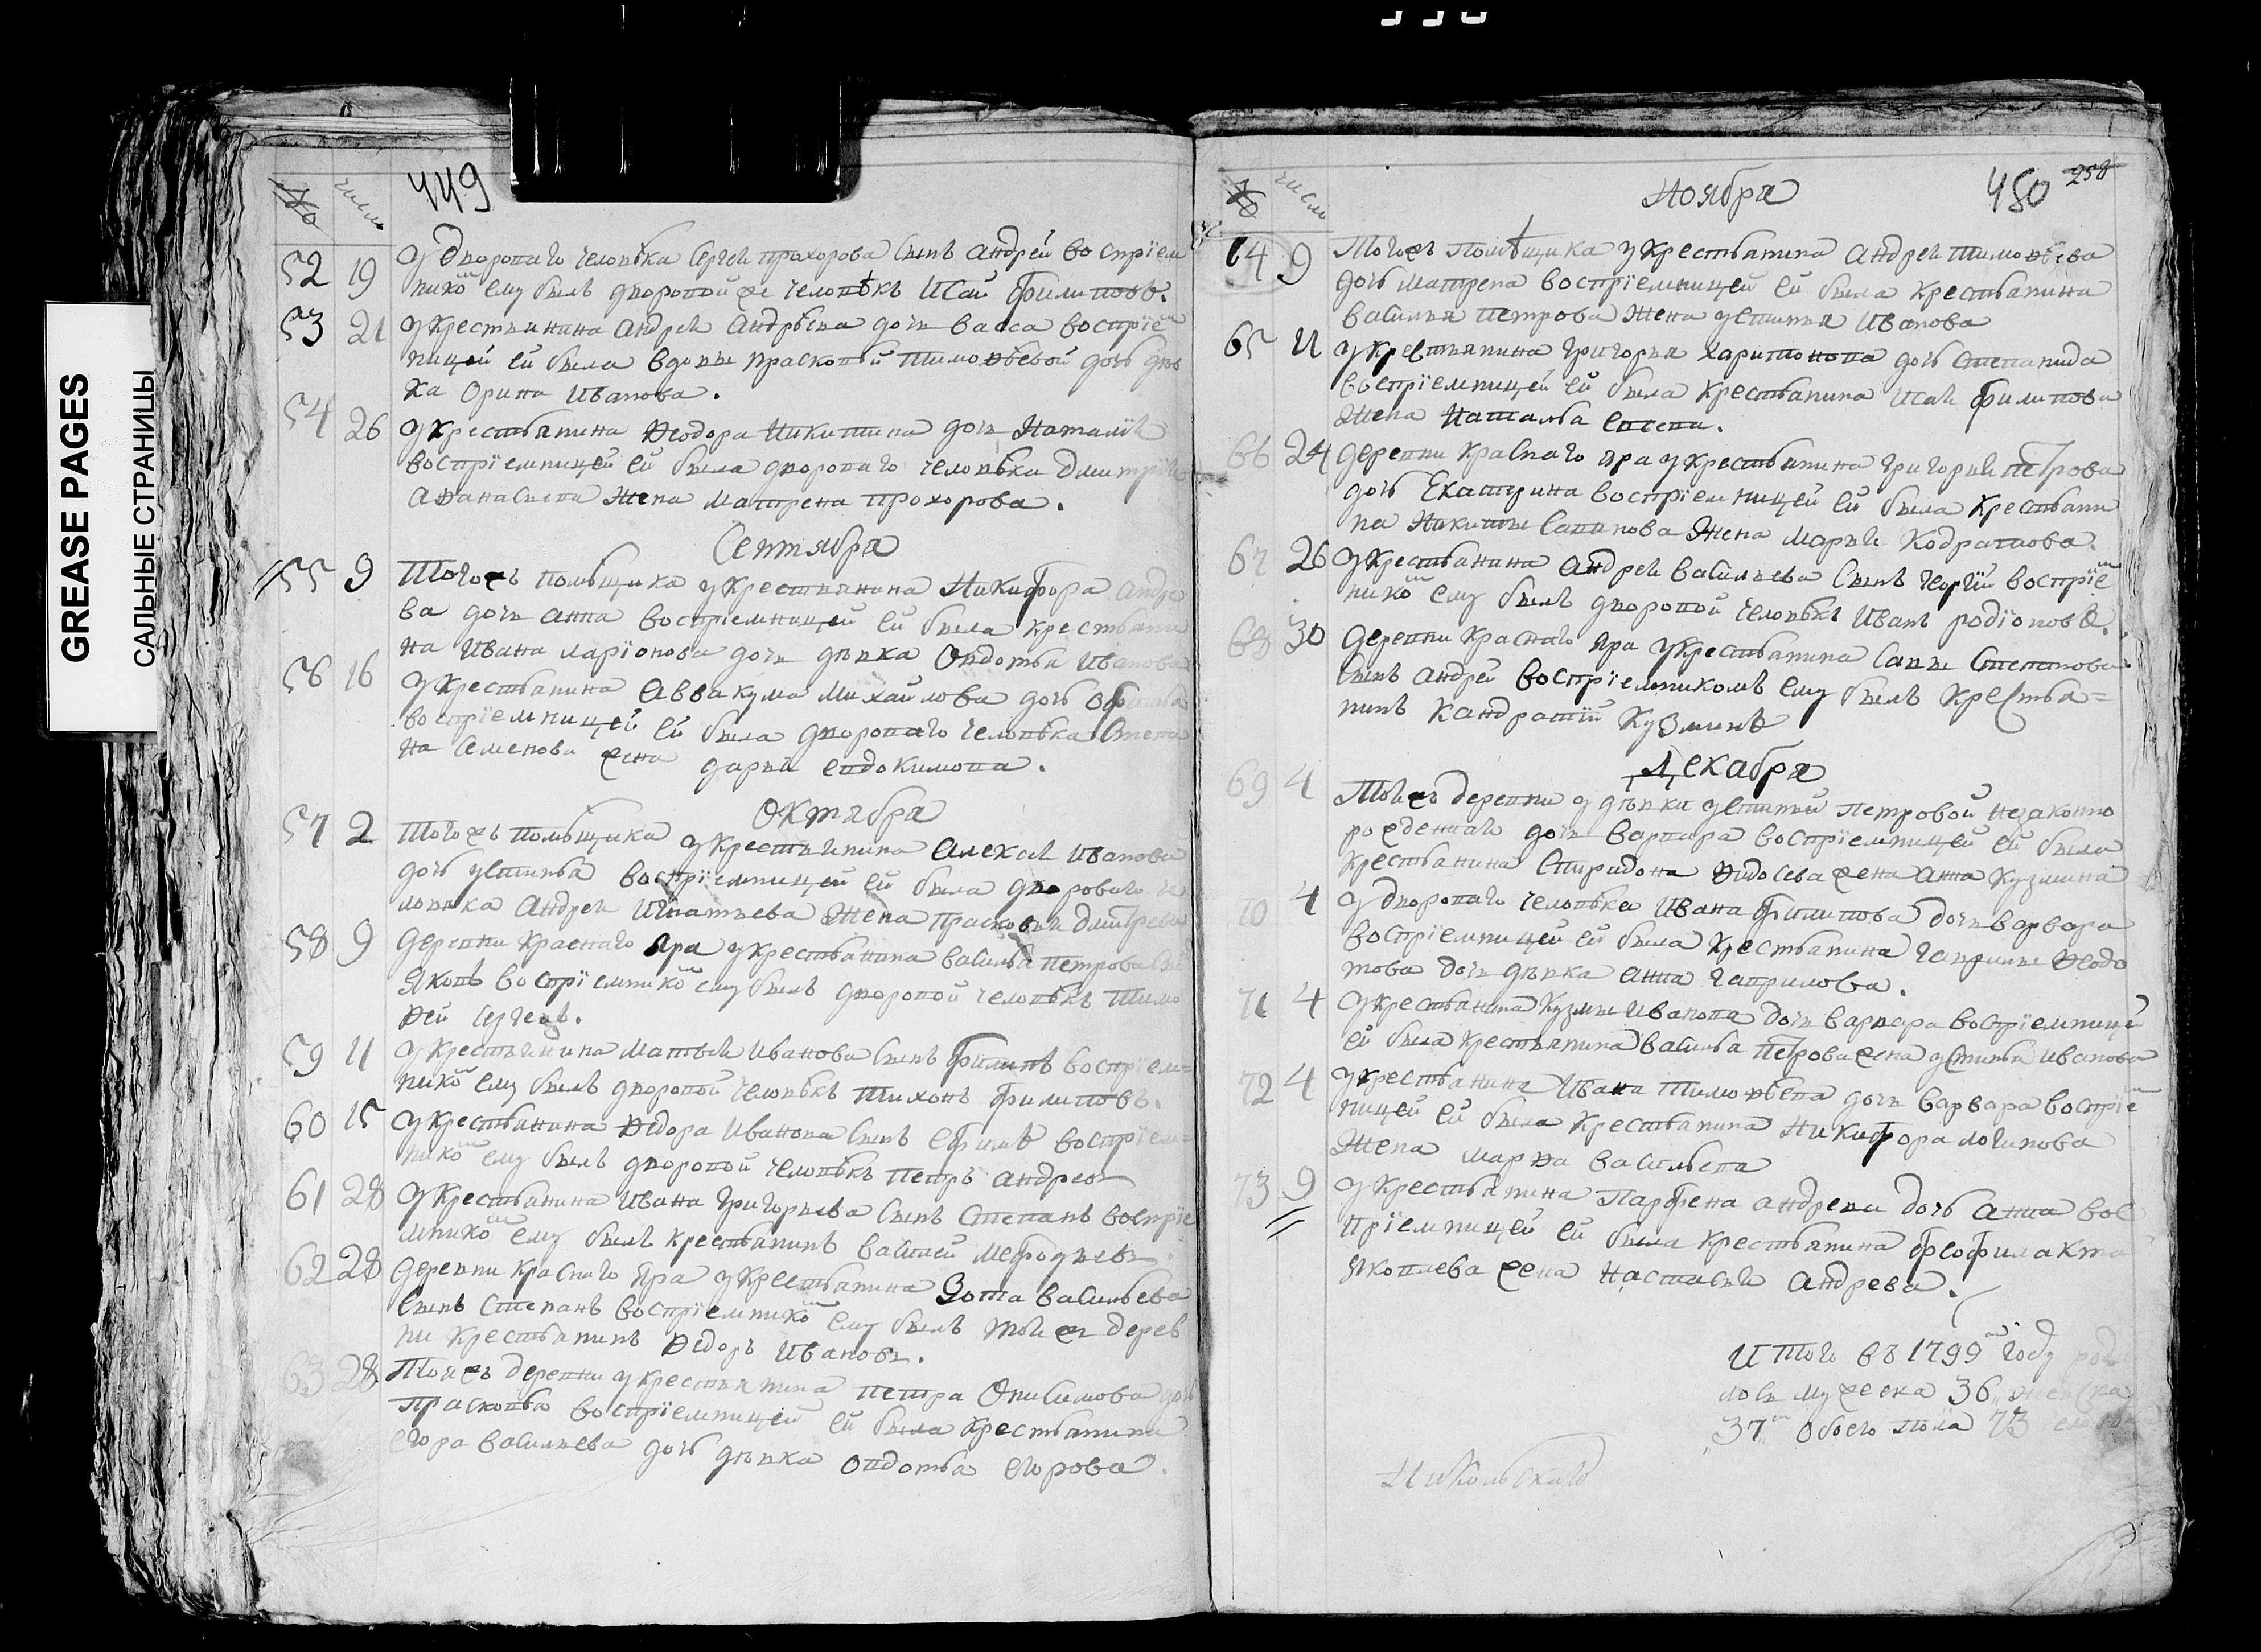 GREASE PAGES
САЛЬНЫЕ СТРАНИЦЫ
449
№ число
52 19 У двороваго человѣка Сергея Прохорова сынъ Андрей восприем
нико ему былъ дворовой же человѣкъ Исаи Филиповъ.
53 21 У крестьянина Андрея Андрѣева дочь Васса воспріем
ницей ей была вдовы Прасковьи Тимоѳѣевой дочь дѣв
ка Орина Иванова.
54 26 У крестьянина Ѳеодора Никитина дочь Наталія
воспріемницей ей была двороваго человѣка Дмитрія
Аѳанасьева жена Матрена Прохорова.
Сентября
55 9 Тогожъ помѣщика у крестьянина Никифора Андре
ва дочь Анна воспріемницей ей была крестьяни
на Ивана Ларіонова дочь дѣвка Овдотья Иванова
56 16 У крестьянина Аввакума Михайлова дочь
воспріемницей ей была двороваго человѣка Степа
на Семенова жена Дарья Евдокимова.
Октября
57 2 Тогожъ помѣщика у крестьянина Алексея Иванова
дочь Устинья воспріемницей ей была двороваго че
ловѣка Андрея Игнатьева жена Прасковья Дмитрева
58 9 Деревни Краснаго Яра у крестьянина Василья Петрова сынъ
Яковъ воспріемнико ему былъ дворовой человѣкъ Тимо
ѳей Сергеевъ.
59 11 У крестьянина Матвея Иванова сынъ Филипъ воспріем=
нико ему былъ дворовой человѣкъ Тихонъ Филиповъ.
60 15 У крестьянина Ѳедора Иванова сынъ Ефимъ воспріем=
нико ему былъ дворовой человѣкъ Петръ Андреевъ
61 28 У крестьянина Ивана Григорьева сынъ Степанъ воспріе
мнико ему былъ крестьянинъ Василей Мефодьевъ
62 28 Деревни Краснаго Яра у крестьянина Зота Васильева
сынъ Степанъ воспріемнико ему былъ той же дерев
ни крестьянинъ Ѳедоръ Ивановъ.
63 28 Тояжъ деревни у крестьянина Петра Онисимова дочь
Прасковья воспріемницей ей была крестьянина
Егора Васильева дочь дѣвка Овдотья Егорова.
450 258
№ число
Ноября
64 9 Тогожъ помѣщика у крестьянина Андрея Тимоѳѣева
дочь Матрена воспріемницей ей была крестьянина
Василья Петрова жена Устинья Иванова
65 11 У крестьянина Григорья Харитонова дочь Степанида
воспріемницей ей была крестьянина Исаи Филипова
жена Наталья
66 24 Деревни Краснаго Яра у крестьянина Григорья Петрова
дочь Екатерина воспріемницей ей была крестьяни
на Никиты жена Марья Кодратова.
67 26 У крестьянина Андрея Васильева сынъ Георгій воспріем
нико ему былъ дворовой человѣкъ Иванъ Родіоновъ.
68 30 Деревни Краснаго Яра у крестьянина Савы Степанова
сынъ Андрей воспріемникомъ ему былъ крестья=
нинъ Кандратій Кузминъ
Декабря
69 4 Тойжъ деревни у дѣвки Устиньи Петровой незаконно
рожденная дочь Варвара воспріемницей ей была
крестьянина Спиридона Ѳидосева жена Анна Кузмина
70 4 У двороваго человѣка Ивана Филипова дочь Варвара
воспріемницей ей была крестьянина Гаврилы Ѳедо
това дочь дѣвка Анна Гаврилова.
71 4 У крестьянина Кузмы Иванова дочь Варвара воспріемницей
ей была крестьянина Василья Петрова жена Устинья Иванова
72 4 У крестьянина Ивана Тимоѳѣева дочь Варвара воспріем
ницей ей была крестьянина Никифора Логинова
жена Марѳа Васильева
73 9 У крестьянина Парфена Андрева дочь Анна вос
пріемницей ей была крестьянина Феофилакта
Яковлева жена Настасья Андрева.
Итого въ 1799 году роди
лось мужеска 36 женска
37 обоего пола 73
Никольскаго